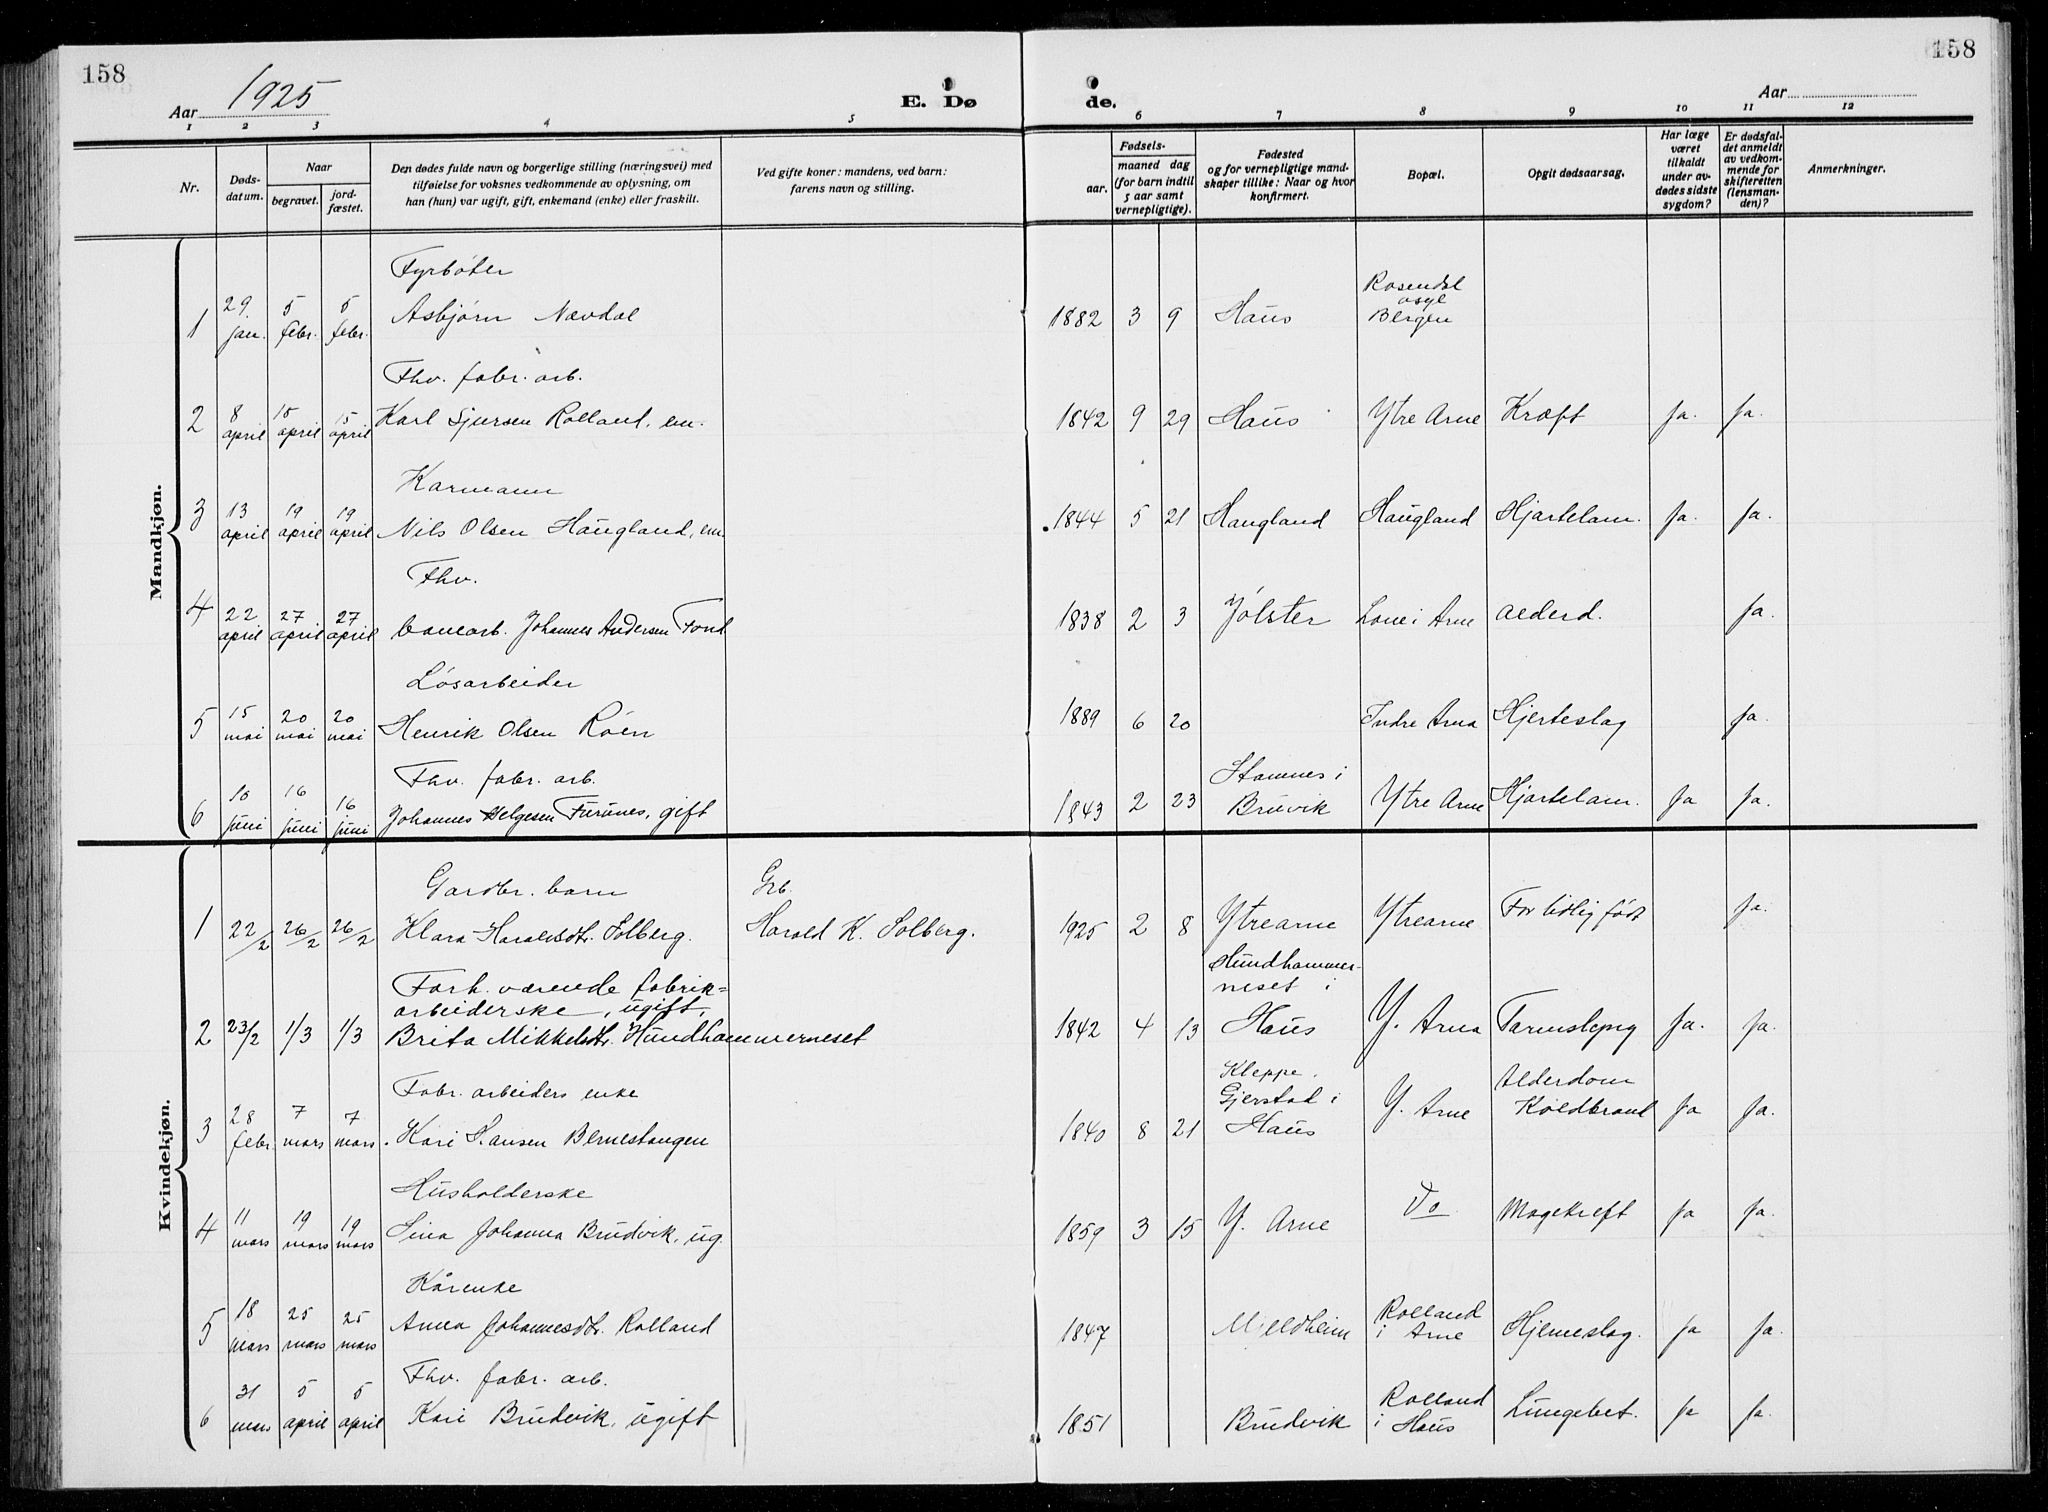 158
158
Aar 1925
E. Dø
de.
Aar
1 2 3 4 5
6 7 8 9 10 11 12
Nr.
Døds-
datum.
Naar
begravet.
jord-
fæstet.
Den dødes fulde navn og borgerlige stilling (næringsvei) med
tilføielse for voksnes vedkommende av oplysning, om
han (hun) var ugift, gift, enkemand (enke) eller fraskilt.
Ved gifte koner: mandens, ved barn:
farens navn og stilling.
Fødsels-
aar.
maaned dag
(for barn indtil
5 aar samt
vernepligtige).
Fødested
og for vernepligtige mand-
skaper tillike: Naar og hvor
konfirmert.
Bopæl.
Opgit dødsaarsag.
Har læge
været
tilkaldt
under av-
dødes sidste
sygdom?
Er dødsfal-
det anmeldt
av vedkom-
mende for
skifteretten
(lensman-
den)?
Anmerkninger.
Mandkjøn.
Fyrbøter
1 29. jan. 5 febr. 5 febr. Asbjørn Nævdal 1882 3 9 Haus Rosendal asyl Bergen
Fhv. fabr. arb.
2 8 april 15 april 15 april Karl Sjursen Rolland, em. 1842 9 29 Haus Ytre Arne Kræft ja. ja.
Kårmann
3 13 april 19 april 19 april Nils Olsen Haugland, em. 1844 5 21 Haugland Haugland Hjartelam. ja. ja.
Fhv.
4 22 april 27 april 27 april banearb. Johannes Andersen Fond 1838 2 3 Jølster Lone i Arne Alderd. ja.
Løsarbeider
5 15 mai 20 mai 20 mai Henrik Olsen Røen 1889 6 20 Indre Arna Hjerteslag ja.
Fhv. fabr. arb.
6 10 juni 16 juni 16 juni Johannes Helgesen Furunes, gift 1843 2 23 Stamnes i Bruvik Ytre Arne Hjartelam. ja ja.
Kvindekjøn.
Gardbr. barn Grb.
1 22/2 26/2 26/2 Klara Haraldsdtr. Solberg. Harald K. Solberg. 1925 2 8 Ytrearne Ytrearne For tidlig født ja.
Forh. værende fabrik=
arbeiderske, ugift,
2 23/2 1/3 1/3 Brita Mikkelsdtr. Hundhammerneset 1842 4 13 Hundhammer-neset i Haus Y. Arna Tarmslyng ja. ja.
Fabr. arbeiders enke
3 28 febr. 7 mars 7 mars Kari Hansen Bernestangen 1840 8 21 Kleppe. Gjerstad i Haus Y. Arne Alderdom Koldbrand ja ja.
Husholderske
4 11 mars 19 mars 19 mars Sina Johanna Brudvik, ug. 1859 3 15 Y. Arne Do Magekreft ja ja.
Kårenke
5 18 mars 25 mars 25 mars Anna Johannesdtr. Rolland 1847 Mjeldheim Rolland i Arne Hjerneslag. ja ja.
Fhv. fabr. arb.
6 31 mars 5 april 5 april Kari Brudvik, ugift 1851 Brudvik Rolland i Haus Lungebet. ja ja.